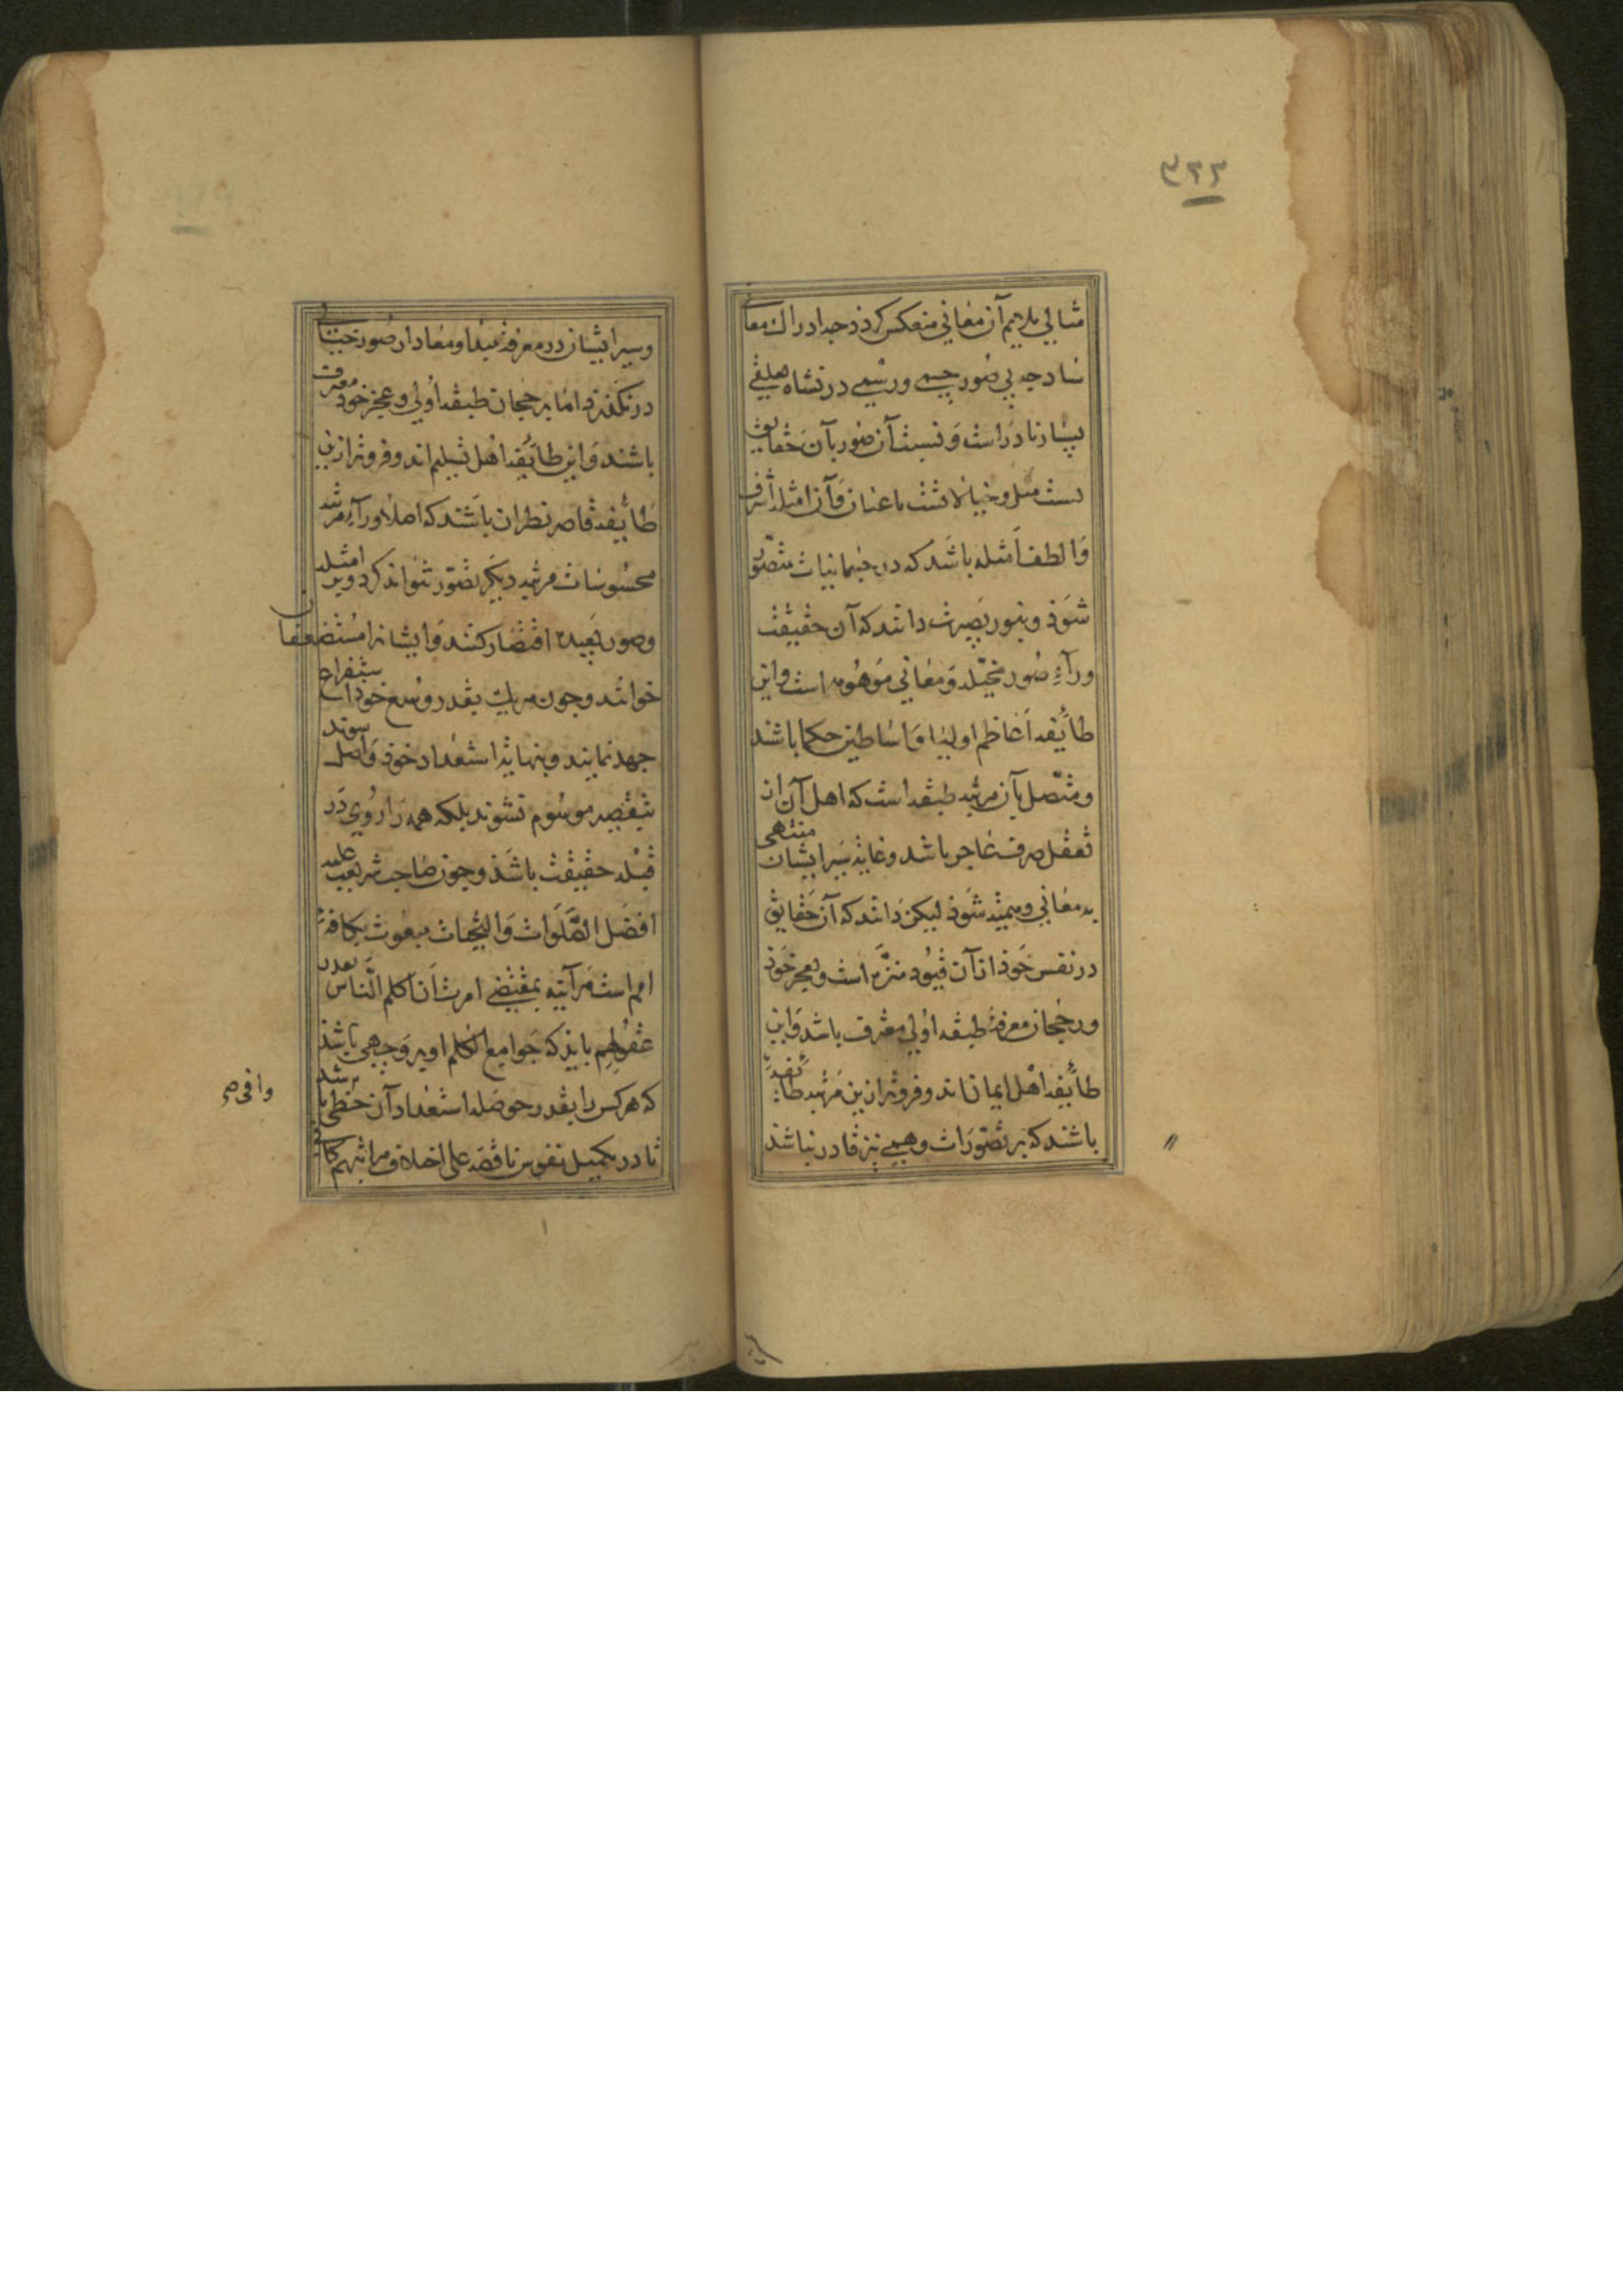 ۳۲۲
مثالی ملایم آن معانی منعکس کردد جه ادراك معانی
ساده بی صور جسمی و رسمی در نشاه تعلقی
بسیار نادر است و نسبت آن صور بآن حقایق
نسبت مثل و خیالات است با عیان و آن امثله اشرف
و الطف امثله باشد که در جسمانیات متصور
شود و بنور بصیرت دانند که آن حقیقت
ورآء صور متخیله و معانی موهومه است و این
طائفه اعاظم اولیا و اساطین حکما باشند
و متصل بآن مرتبه طبقه است که اهل آن از
تعقل صرف عاجز باشد و غایة سیر ایشان منتهی
به معانی وهمیه شود لیکن دانند که آن حقایق
در نفس خود از آن قیود منزه است و بعجز خود
و رجحان معرفة طبقه اولی معترف باشد و این
طائفه اهل ایمان اند و فروتر ازین مرتبه طائفه
باشند که بر تصورات وهمی نیز قادر نباشند
و سیر ایشان در معرفة مبدا و معاد از صور خیالی
در نکذرد اما برجحان طبقه اولی و عجز خود معرفت
باشند و این طائفه اهل تسلیم اند و فروتر ازین
طائفه قاصر نظران باشند که اصلا ورآء مرتبه
محسوسات مرتبه دیکر تصور نتواند کرد و بر امثله
و صور بعیده اقتصار کنند و ایشانرا مستضعفان
خوانند و چون هر یك بقدر وسع خود استفراغ
جهد نمایند و بنهایة استعداد خود واصل شوند
بتقصیر موسوم نشوند بلکه همه را روی در
قبله حقیقت باشد و چون صاحب شریعت علیه
افضل الصلوات و التحیات مبعوث بکافه
امم است هرآینه بمقتضی امرت ان اکلم الناس بقدر
عقولهم باید که جوامع الکلم او بر وجهی باشد
که هر کس را بقدر حوصله استعداد آن حظی باشد
تا در تکمیل نفوس ناقصه علی اختلاف مراتبهم کافی
وافی صح